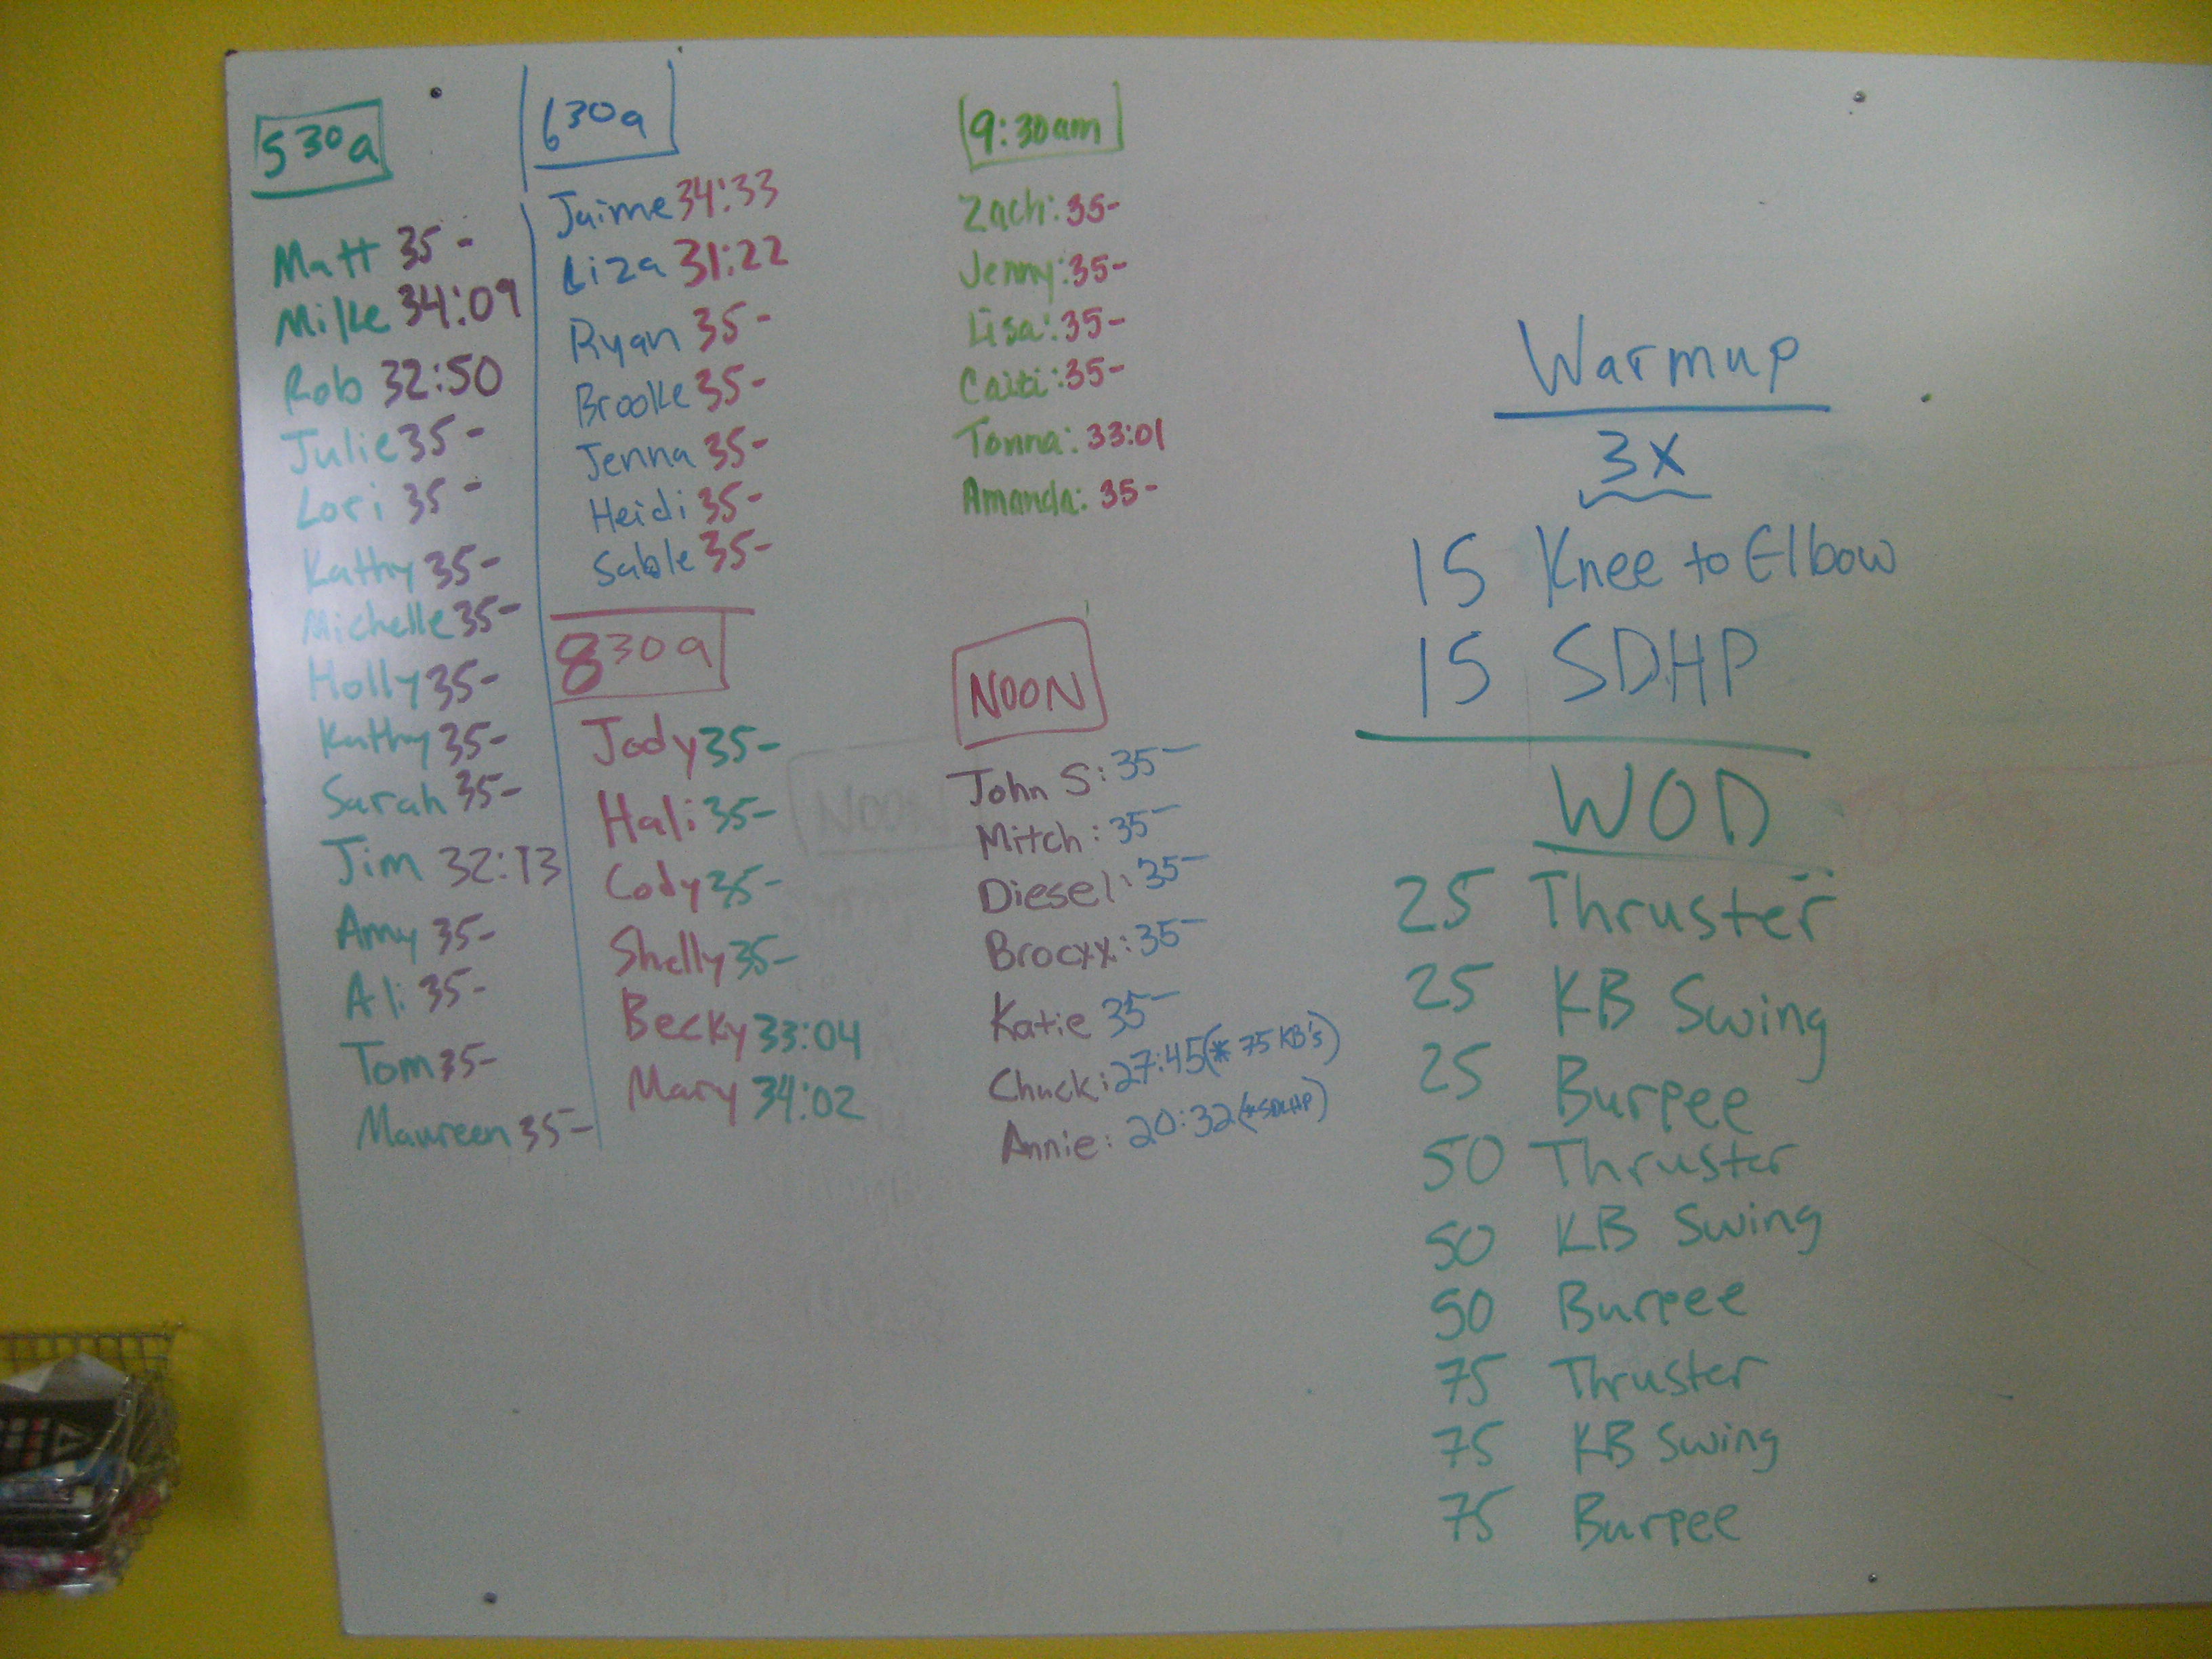 530a
Matt 35-
Mike 34:09
Rob 32:50
Julie 35-
Lori 35-
Kathy 35-
Michelle 35-
Holly 35-
Kathy 35-
Sarah 35-
Jim 32:13
Amy 35-
Ali 35-
Tom 35-
Maureen 35-
630a
Jaime 34:33
Liza 31:22
Ryan 35-
Brooke 35-
Jenna 35-
Heidi 35-
Sable 35-
830a
Jody 35-
Hali 35-
Cody 35-
Shelly 35-
Becky 33:04
Mary 34:02
9:30am
Zach: 35-
Jenny: 35-
Lisa: 35-
Caiti: 35-
Tonna: 33:01
Amanda: 35-
NOON
John S: 35-
Mitch: 35-
Diesel: 35-
Brocxx: 35-
Katie 35-
Chuck: 27:45 (* 75 KB's)
Annie: 20:32 (*SDHP)
NOON
Warmup
3x
15 Knee to Elbow
15 SDHP
WOD
25 Thruster
25 KB Swing
25 Burpee
50 Thruster
50 KB Swing
50 Burpee
75 Thruster
75 KB Swing
75 Burpee